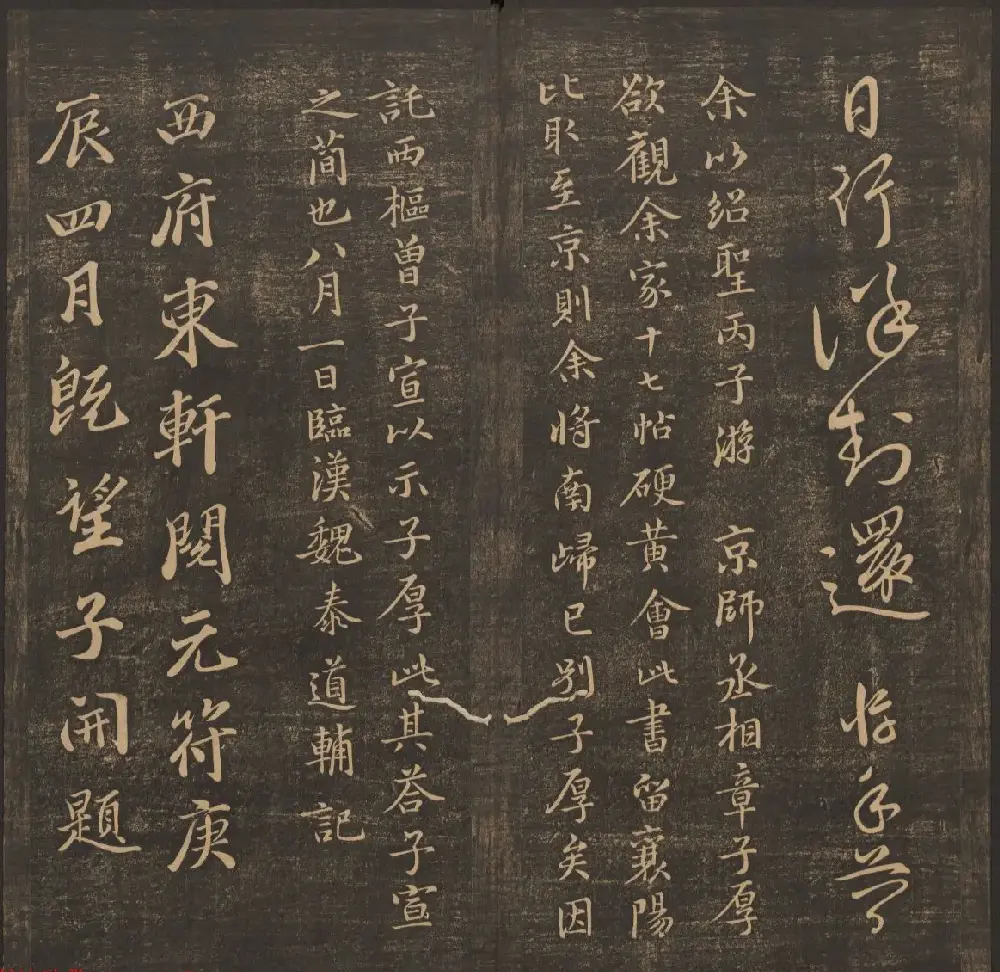 日行深封還 惇手簡
余以紹聖丙子游 京師丞相章子厚
欲觀余家十七帖硬黃會此書留襄陽
比取至京則余將南歸已別子厚矣因
託西樞曾子宣以示子厚此其荅子宣
之蕳也八月一日臨漢魏泰道輔記
西府東軒閱元符庚
辰四月旣望子開題